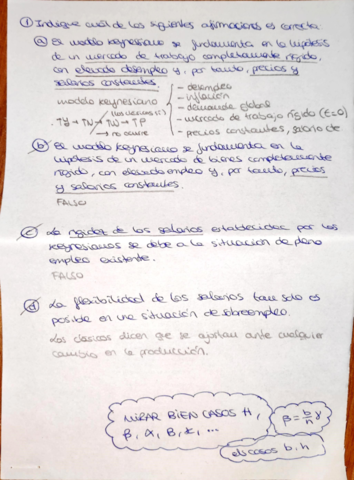 ① Indique cuál de las siguientes afirmaciones es correcta
ⓐ El modelo keynesiano se fundamenta en la hipótesis
de un mercado de trabajo completamente rígido,
con elevado desempleo y, por tanto, precios y
salarios constantes.
modelo keynesiano
(los vemos
↑Y → ↑N → ↑W → ↑P
→ no ocurre
- desempleo
- inflación
- demanda global
- mercado de trabajo rígido (ε=0)
- precios constantes, salario
ⓑ El modelo keynesiano se fundamenta en la
hipótesis de un mercado de bienes completamente
rígido, con elevado empleo y, por tanto, precios
y salarios constantes.
FALSO
ⓒ La rigidez de los salarios establecidos por los
keynesianos se debe a la situación de pleno
empleo existente.
FALSO
ⓓ La flexibilidad de los salarios tan solo es
posible en una situación de sobreempleo.
Los clásicos dicen que se ajustan ante cualquier
cambio en la producción.
MIRAR BIEN CASOS H,
β, α, B, K, ...
β = b/h γ
casos b, h